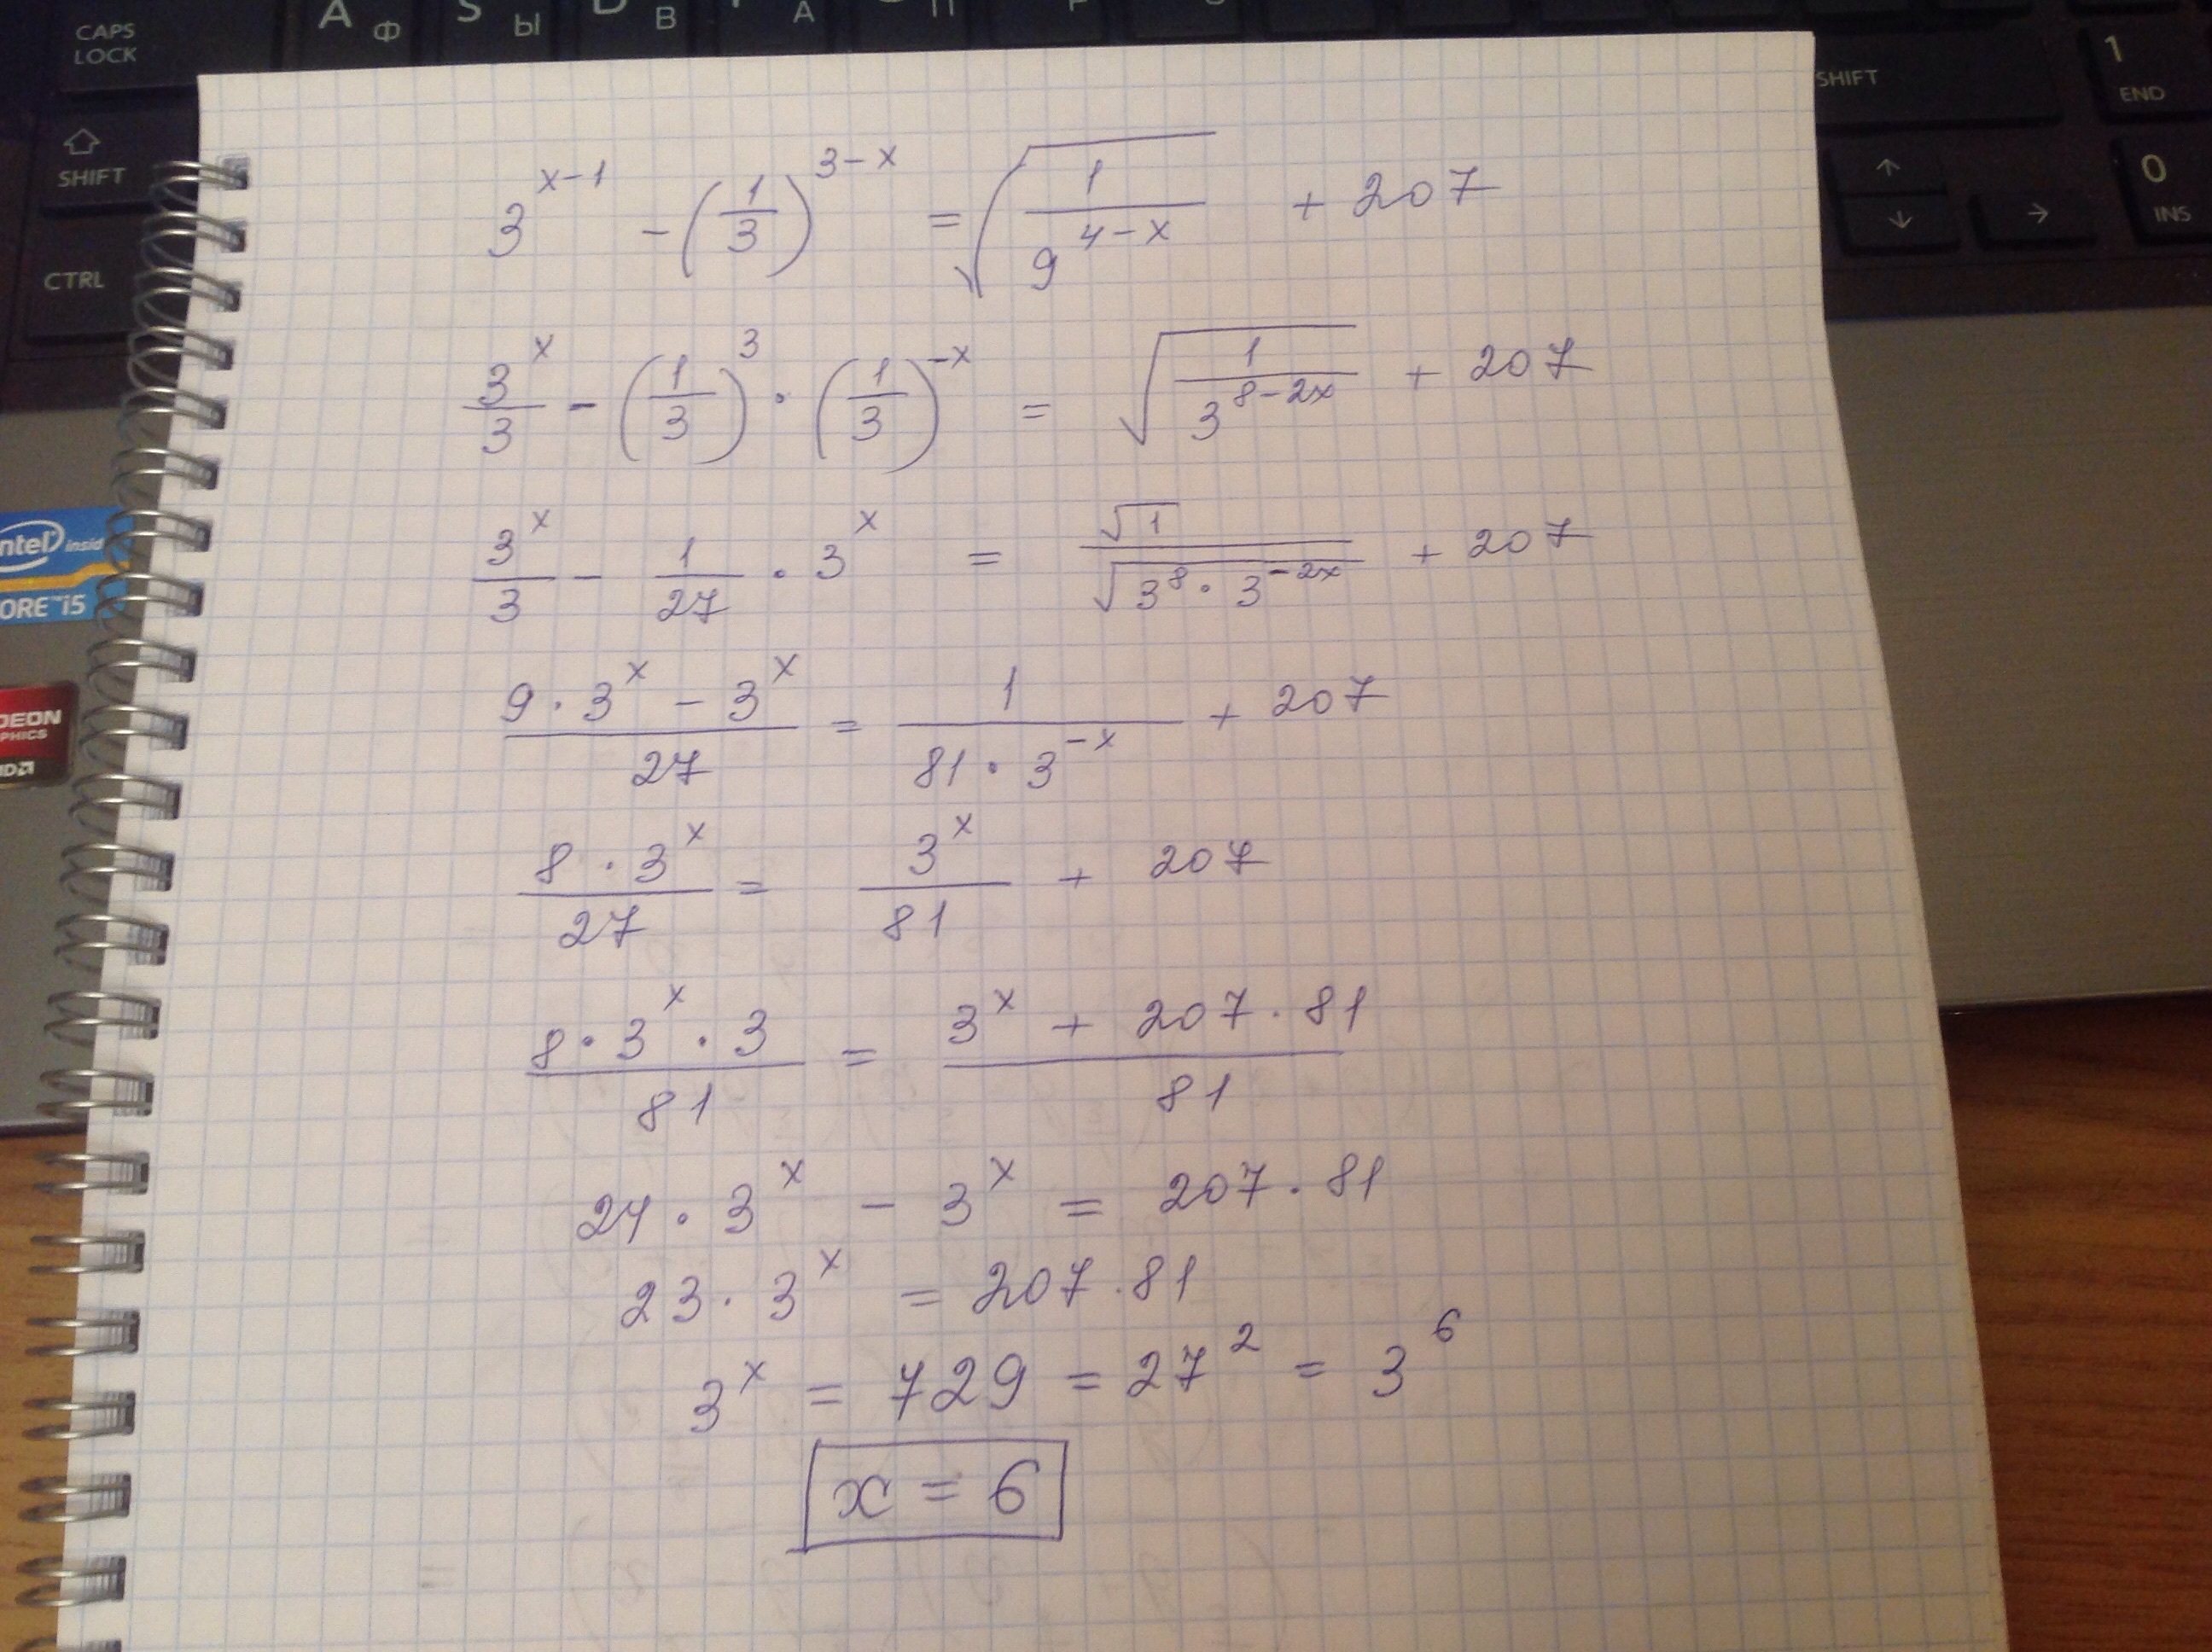 CAPS LOCK A Ф S Ы D В А
SHIFT
CTRL
SHIFT
1 END
0 INS
intel inside
CORE i5
3^{x-1} - (1/3)^{3-x} = √(1/9^{4-x}) + 207
3^x/3 - (1/3)^3 · (1/3)^{-x} = √(1/3^{8-2x}) + 207
3^x/3 - 1/27 · 3^x = √1/√(3^8 · 3^{-2x}) + 207
(9 · 3^x - 3^x)/27 = 1/(81 · 3^{-x}) + 207
8 · 3^x/27 = 3^x/81 + 207
8 · 3^x · 3/81 = (3^x + 207 · 81)/81
24 · 3^x - 3^x = 207 · 81
23 · 3^x = 207 · 81
3^x = 729 = 27^2 = 3^6
x = 6